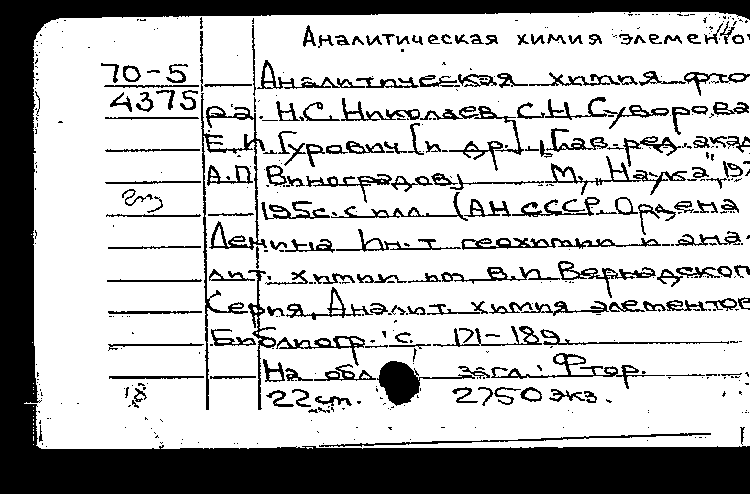 Аналитическая химия элементо
70-5 Аналитическая химия фто
4375 ра. Н.С. Николаев, С.Н. Суворова
Е.И. Гурович [и др.], Глав. ред. акад
А.П. Виноградов] М., "Наука", 197
195с. с илл. (АН СССР. Ордена
Ленина Ин-т геохимии и ана-
лит. химии им. В.И. Вернадског
Серия, Аналит. химия элементов
Библиогр.: с. 171-189.
На обл. загл.: Фтор.
22 см. 2750 экз.
18